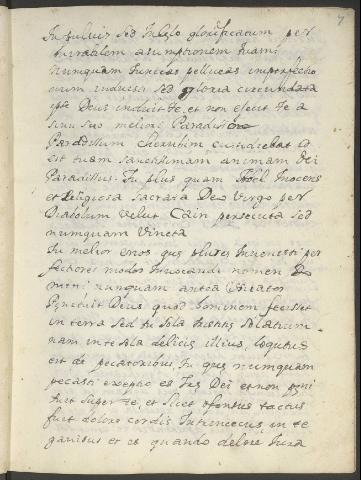 7
In pulvis sed In Caelo glorificatum per
mirabilem asumptionem tuam:
Nunquam tunicas pelliceas imperfectio
num induisti sed gloria circundata
ipse Deus induit te. et non ejecit te a
sinu suo meliori Paradisi
Paradisum Cherubim custodiebat id
est tuam sanctissimam animam Dei
Paradissus. Tu plus quam Abel Inocens
et Religiosa sacrata Deo Virgo per
Diabolum velut Cain persecuta sed
nunquam Vincta
Tu melior enos que plures Invenisti per
fectiores modos Invocandi nomen Do
mini nunquam antea
Penituit Deus quod hominem fecisset
in terra sed tu sola fuistis solatium
nam in te sola delicis illius, loqutus
est de pecatoribus Tu que nunquam
pecasti exceptio es Tes Dei et non peni
tuit super te, et licet ofensus tactus
fuit dolore cordis Intrinsecus, in te
gavisus et es quando delere Iura